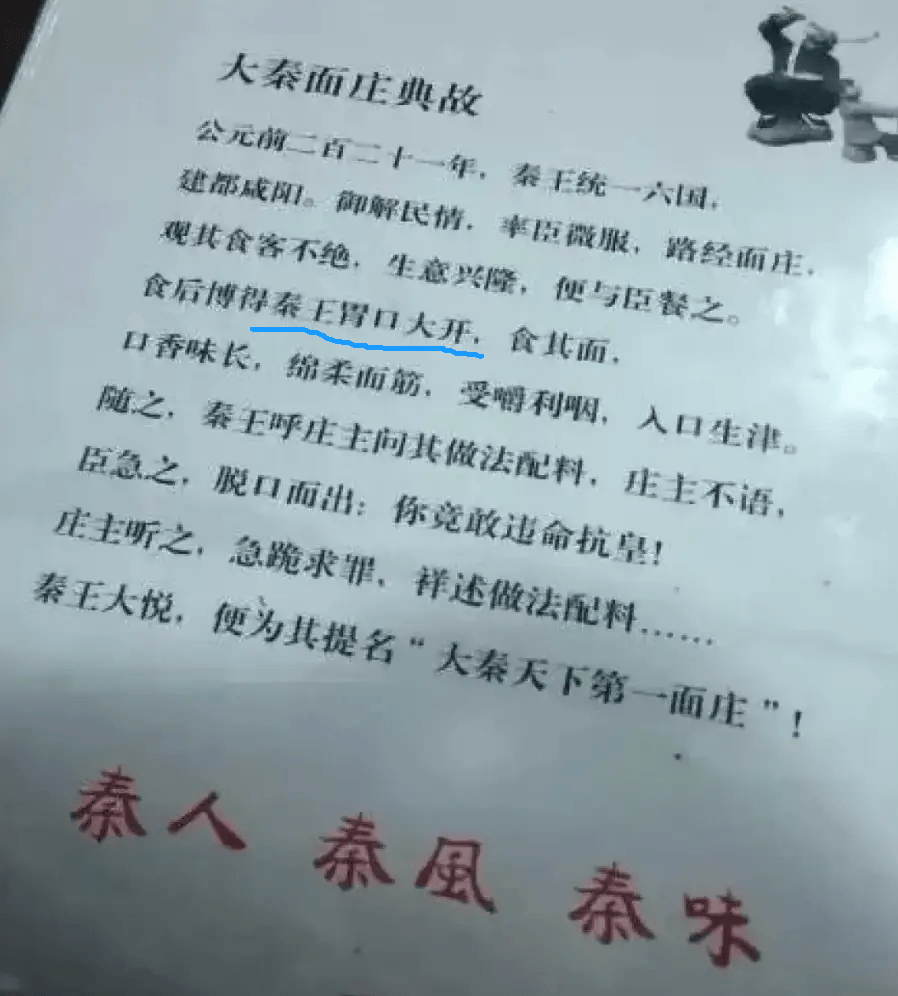 大秦面庄典故
公元前二百二十一年，秦王统一六国，
建都咸阳。御解民情，率臣微服，路经面庄，
观其食客不绝，生意兴隆，便与臣餐之。
食后博得秦王胃口大开，食其面，
口香味长，绵柔面筋，受嚼利咽，入口生津。
随之，秦王呼庄主问其做法配料，庄主不语，
臣急之，脱口而出：你竟敢违命抗皇！
庄主听之，急跪求罪，祥述做法配料……
秦王大悦，便为其提名“大秦天下第一面庄”！
秦人 秦風 秦味